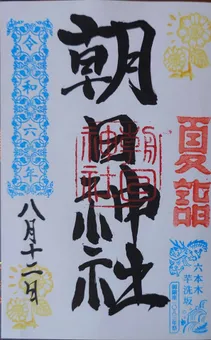 夏詣
六本木
芋洗坂
朝日神社
朝日神社
令和六年
八月十二日